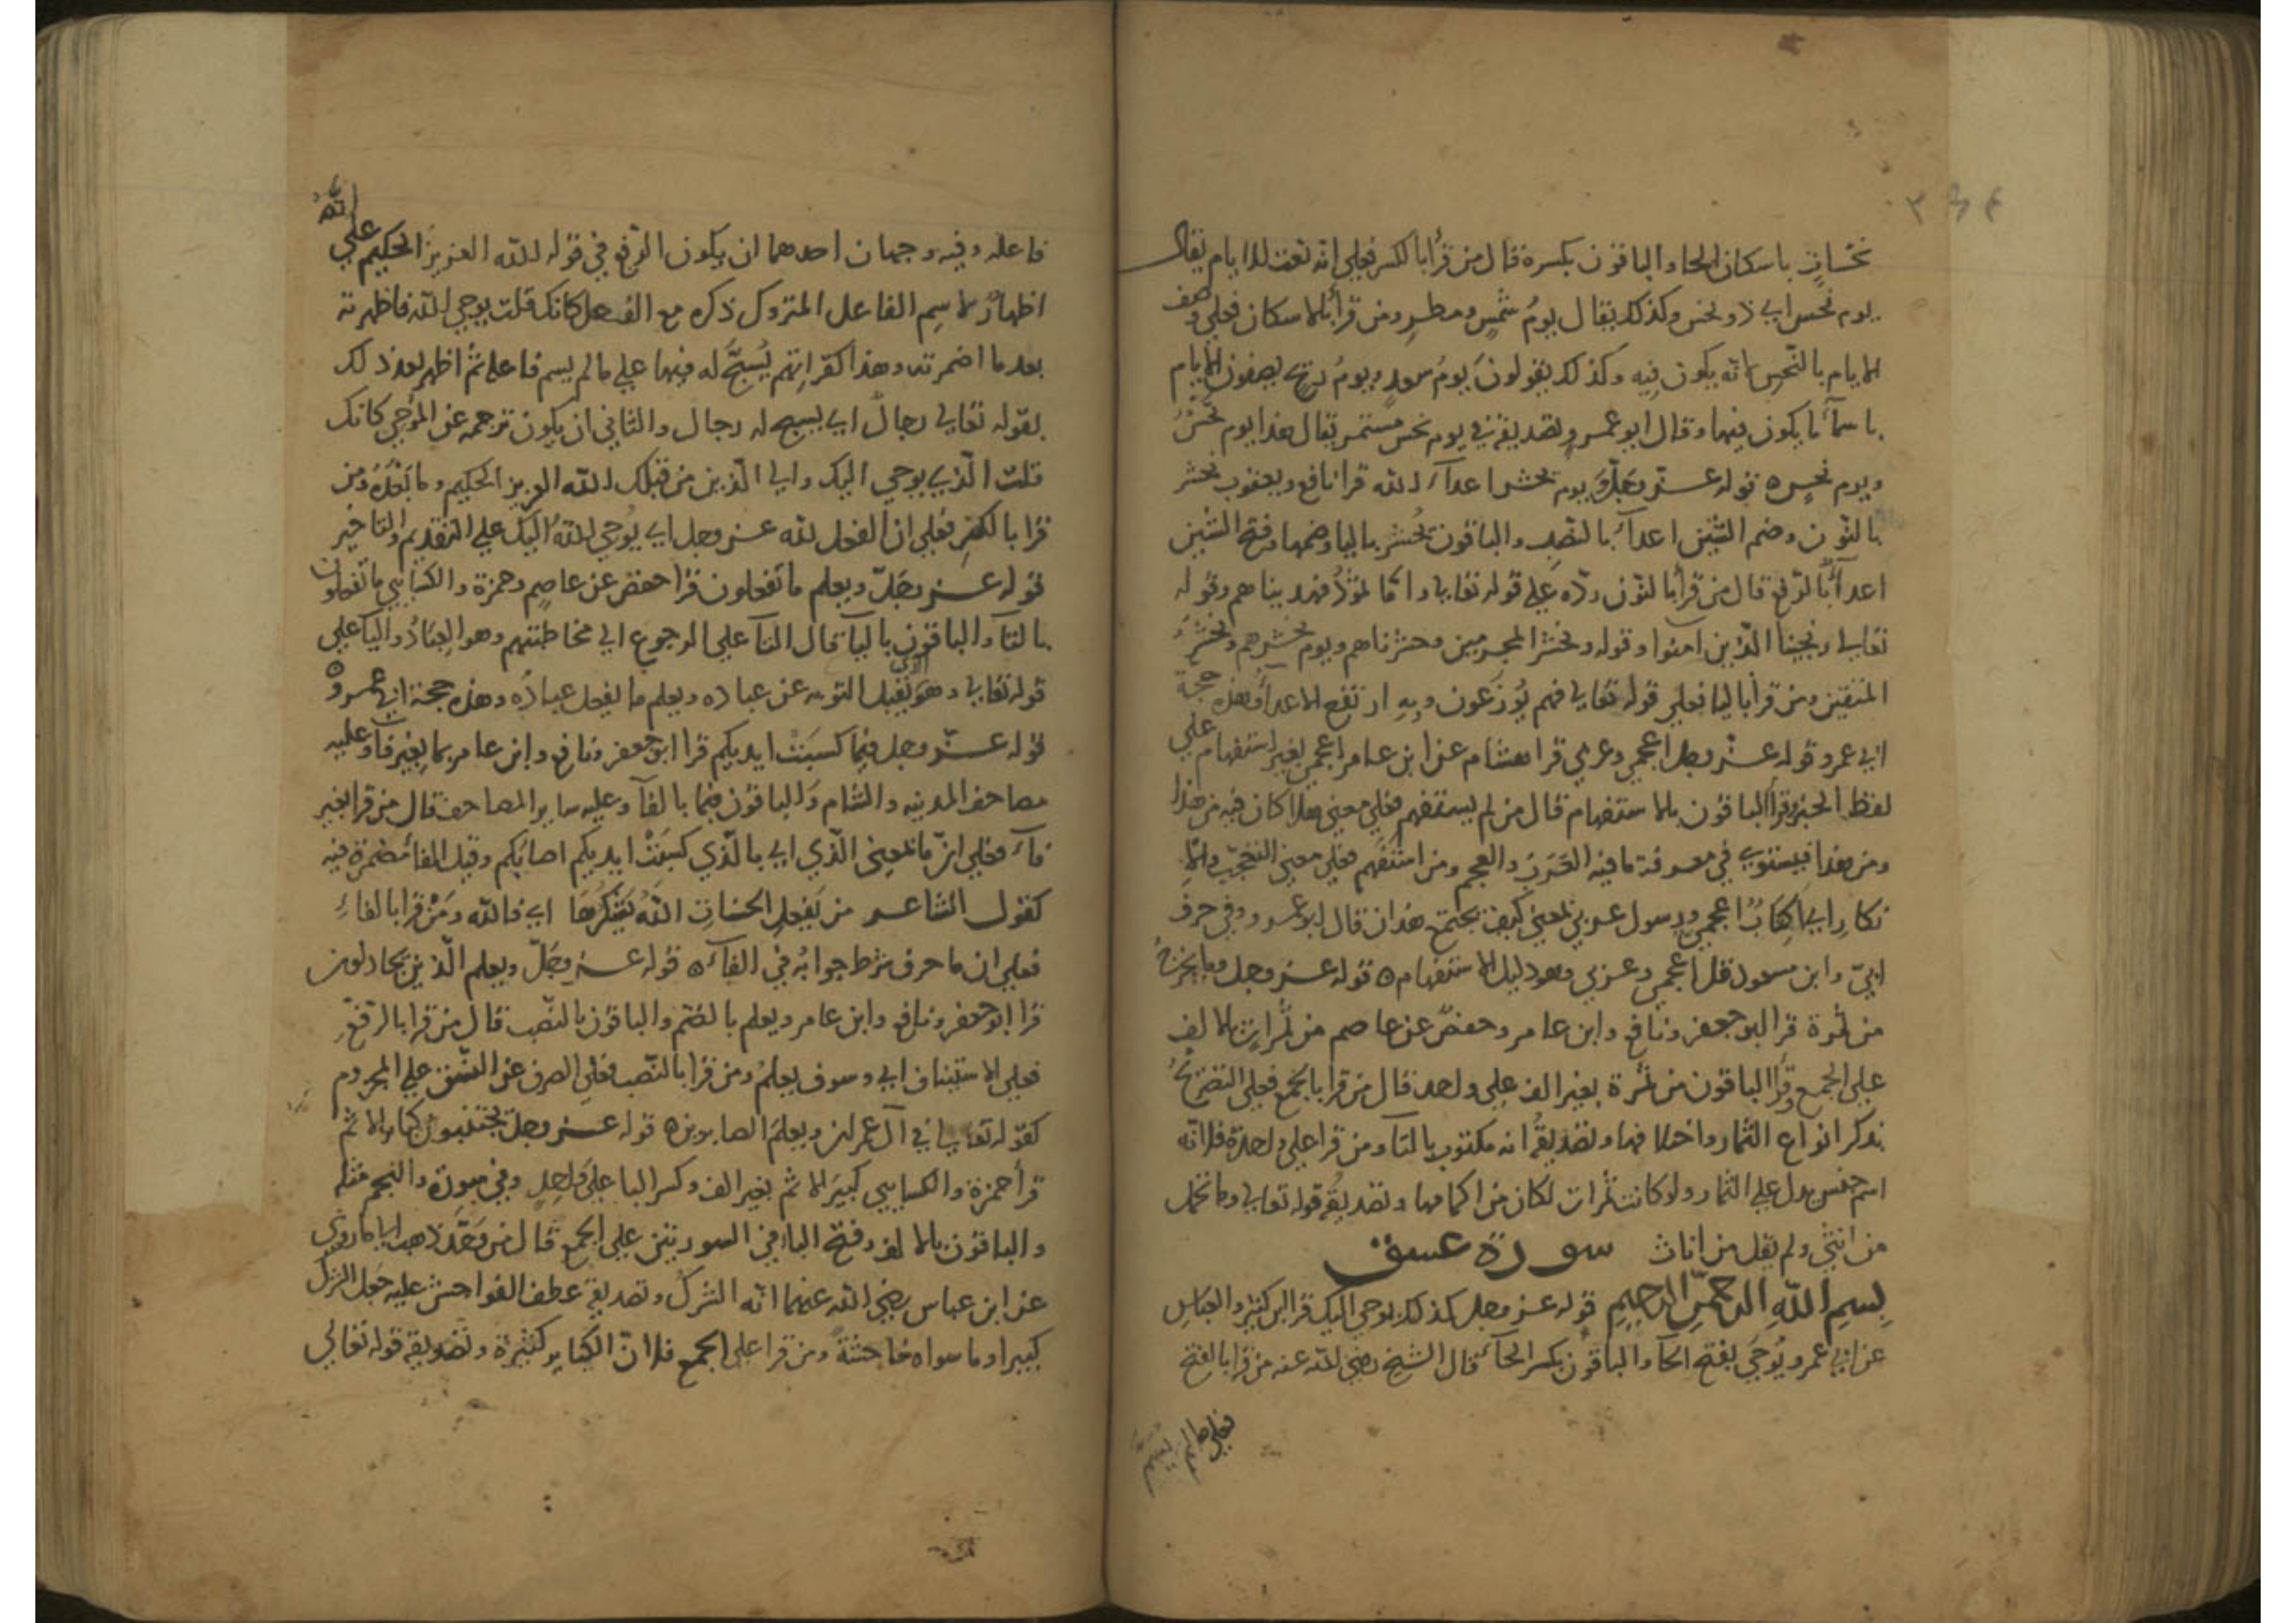 نحْسَاتٍ باسكان الحا والباقون بكسره قال من قرأ بالكسر فعلي انه نعت للايام يقال
يوم نحس اي ذو نحس وكذلك يقال يومُ شمسٍ ومطرٍ ومن قرأ بالاسكان فعلي وصف
الايام بالنّحس لانه يكون فيه وكذلك يقولون يومُ سعدٍ ويومُ ريحٍ يصفون الايام
باسمآء ما يكون فيها وقال ابو عمرو وتصديقه في يوم نحس مستمر يقال هذا يوم نحسٌ
ويوم نحسٍ ه قوله عزّ وجلّ ويوم يحشر اعدآء الله قرا نافع ويعقوب نحشر
بالنّون وضم الشين اعدآءَ بالنّصب والباقون يُحشر باليا وضمها وفتح الشين
اعدآءُ بالرّفع قال من قرأ بالنون ردّه علي قوله تعالي واما ثمودُ فهديناهم وقوله
تعالي ونجينا الذين آمنوا وقوله ونحشر المجرمين وحشرناهم ويوم نحشرهم ونحشر
المتقين ومن قرأ باليا فعلي قوله تعالي فهم يُوزَعون وبه ارتفع الاعدآء وهذه حجة
ابي عمرو قوله عزّ وجل اعجمي وعربي قرا هشام عن ابن عامر اعجمي بغير استفهام علي
لفظ الخبر وقرأ الباقون بالاستفهام قال من لم يستفهم فعلي معني هلا كان فيه من هذا
ومن هذا فيستوي في معرفة ما فيه العَرَبُ والعجم ومن استفهم فعلي معني التعجّب والا
نكارِ اي اكِتابٌ اعجمي ورسول عربي بمعني كيف يجتمع هذان قال ابو عمرو وفي حرف
ابيّ وابن مسعود قل اعجمي وعربي وهو دليل الاستفهام ه قوله عز وجل وما يخرج
من ثمرة قرا ابو جعفر ونافع وابن عامر وحفصٌ عن عاصم من ثمراتٍ بالالف
علي الجمع وقرا الباقون من ثمرة بغير الف علي واحد قال من قرا بالجمع فعلي التصريح
بذكر انواع الثمار واختلافها وتصديقُه انه مكتوب بالتآ ومن قرا علي واحدة فلانه
اسم جنس يدل علي الثمار ولو كانت ثمرات لكان من اكمامها وتصديقُه قوله تعالي وما تحمل
من انثي ولم يقل من اناث سورة عسق
بسم الله الرحمن الرحيم قوله عز وجل كذلك يوحي اليك قرا ابن كثير والعباس
عن ابي عمرو يُوحَي بفتح الحآ والباقون بكسر الحآء قال الشيخ رضي الله عنه من قرا بالفتح
فاعله وفيه وجهان احدهما ان يكون الرّفع في قوله الله العزيز الحكيم علي
اظهارٌ لاسم الفاعل المتروك ذكره مع الفعل كانك قلت يوحي الله فاظهرته
بعد ما اضمرته وهذا كقرائتهم يُسبَّحُ له فيها علي ما لم يسم فاعله ثم اظهر بعد ذلك
بقوله تعالي رجالٌ اي يسبح له رجال والثاني ان يكون ترجمه عن الموحي كانك
قلت الّذي يوحي اليك والي الّذين من قبلك الله العزيز الحكيم وما بعْدَه ومن
قرا بالكسر فعلي ان الفعل لله عز وجل اي يُوحي اللهُ اليك علي التقديم والتاخير
قوله عز وجلّ ويعلم ما تفعلون قرا حفص عن عاصم وحمزة والكسايي ما تفعلون
بالتآ والباقون باليآ قال التآ علي الرجوع الي مخاطبتهم وهو العِبادُ واليآ علي
قوله تعالي وهو الذي يقبل التوبه عن عباده ويعلم ما يفعل عبادُه وهذه حجة ابي عمرو ه
قوله عزّ وجل فبما كسبَتْ ايديكم قرا ابو جعفر ونافع وابن عامر بما بغير فآ وعليه
مصاحف المدينه والشام والباقون فبما بالفآ وعليه ساير المصاحف قال من قرا بغير
فآء فعلي انّ ما بمعني الّذي اي بالّذي كسبَتْ ايديكم اصابكم وقيل الفآ مضمرة فيه
كقول الشاعر من يَفعلِ الحسناتِ اللّهُ يَشكرُها اي فالله ومَنْ قرا بالفآءِ
فعلي ان ما حرف شرط جوابُه في الفآء ه قوله عز وجَلّ ويعلم الّذين يجادلون
قرا ابو جعفر ونافع وابن عامر ويعلم بالضّم والباقون بالنّصب قال من قرا بالرفع
فعلي الاستيناف اي وسوف يعلمُ ومن قرا بالنّصب فعلي الصرف عن النّسق علي المجزوم
كقوله تعالي في آل عمران ويعلمَ الصابرين ه قوله عز وجلّ يجتنبون كباير الاثم
قرأ حمزة والكسايي كبيَر الاثم بغير الف وكسر البا علي واحد وفي سورة والنجم مثله
والباقون بالالف وفتح الباء في السورتين علي الجمع قال من وَحَّد ذهب الي ما روي
عن ابن عباس رضي الله عنهما انّه الشركُ وتصديقه عطف الفواحش عليه جَعل الشرك
كبيرا وما سواه فاحشةً ومن قرا علي الجمع فلانّ الكبايِر كثيرة وتصديقه قوله تعالي